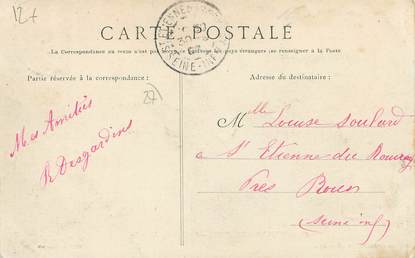 12+
CARTE POSTALE
La Correspondance au verso n'est pas acceptée par tous les pays étrangers (se renseigner à la Poste)
Partie réservée à la correspondance:
Adresse du destinataire:
27)
Mes Amitiés
R Desgardins
Mlle Louise Soulard
a St Etienne du Rouvray
Près Rouen
(Seine inf)